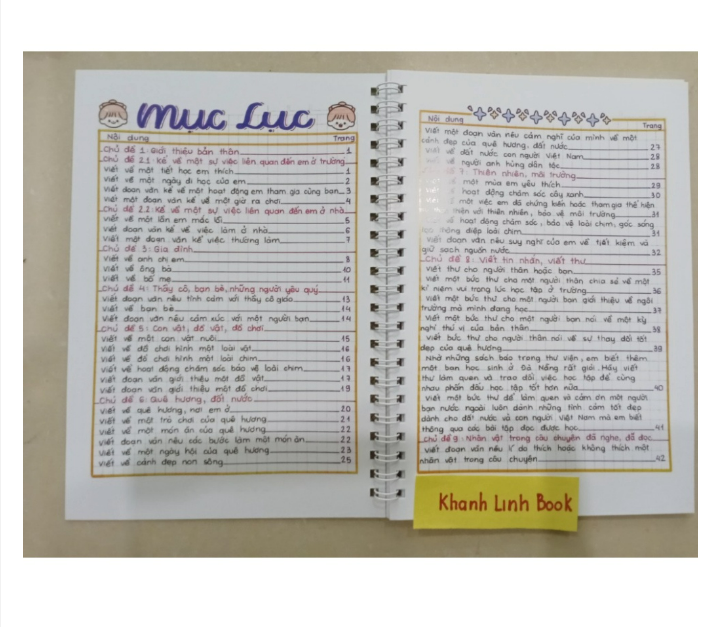 Mục Lục
Nội dung Trang
Chủ đề 1: Giới thiệu bản thân 1
Chủ đề 2.1: Kể về một sự việc liên quan đến em ở trường
Viết về một tiết học em thích 1
Viết về một ngày đi học của em 2
Viết đoạn văn kể về một hoạt động em tham gia cùng bạn 3
Viết một đoạn văn kể về một giờ ra chơi 4
Chủ đề 2.2: Kể về một sự việc liên quan đến em ở nhà
Viết về một lần em mắc lỗi 5
Viết đoạn văn kể về việc làm ở nhà 6
Viết một đoạn văn kể việc thường làm 7
Chủ đề 3: Gia đình
Viết về anh chị em 8
Viết về ông bà 10
Viết về bố mẹ 11
Chủ đề 4: Thầy cô, bạn bè, những người yêu quý
Viết đoạn văn nêu tình cảm với thầy cô giáo 13
Viết về bạn bè 14
Viết đoạn văn nêu cảm xúc với một người bạn 14
Chủ đề 5: Con vật, đồ vật, đồ chơi
Viết về một con vật nuôi 15
Viết về đồ chơi hình một loài vật 16
Viết về đồ chơi hình một loài chim 16
Viết về hoạt động chăm sóc bảo vệ loài chim 17
Viết đoạn văn giới thiệu một đồ vật 17
Viết đoạn văn giới thiệu một đồ chơi 19
Chủ đề 6: Quê hương, đất nước
Viết về quê hương, nơi em ở 20
Viết về một trò chơi của quê hương 21
Viết về một món ăn của quê hương 22
Viết đoạn văn nêu các bước làm một món ăn 22
Viết về một ngày hội của quê hương 23
Viết về cảnh đẹp non sông 25
Nội dung Trang
Viết một đoạn văn nêu cảm nghĩ của mình về một
cảnh đẹp của quê hương, đất nước 27
về đất nước con người Việt Nam 28
về người anh hùng dân tộc 28
7: Thiên nhiên, môi trường
về một mùa em yêu thích 29
hoạt động chăm sóc cây xanh 30
một việc em đã chứng kiến hoặc tham gia thể hiện
thiện với thiên nhiên, bảo vệ môi trường 31
về hoạt động chăm sóc, bảo vệ loài chim, góc sáng
thông điệp loài chim 31
Viết đoạn văn nêu suy nghĩ của em về tiết kiệm và
giữ sạch nguồn nước 32
Chủ đề 8: Viết tin nhắn, viết thư
Viết thư cho người thân hoặc bạn 35
Viết một bức thư cho một người thân chia sẻ về một
kỉ niệm vui trong lúc học tập ở trường 36
Viết một bức thư cho một người bạn giới thiệu về ngôi
trường mà mình đang học 37
Viết một bức thư cho một người bạn nói về một kỳ
nghỉ thú vị của bản thân 38
Viết bức thư cho người thân nói về sự thay đổi tốt
đẹp của quê hương 39
Nhờ những sách báo trong thư viện, em biết thêm
một bạn học sinh ở Đà Nẵng rất giỏi. Hãy viết
thư làm quen và trao đổi việc học tập để cùng
nhau phấn đấu học tập tốt hơn nữa 40
Viết một bức thư để làm quen và cảm ơn một người
bạn nước ngoài luôn dành những tình cảm tốt đẹp
dành cho đất nước và con người Việt Nam mà em biết
thông qua các bài tập đọc được học 41
Chủ đề 9: Nhân vật trong câu chuyện đã nghe, đã đọc
Viết đoạn văn nêu lí do thích hoặc không thích một
nhân vật trong câu chuyện 42
Khanh Linh Book